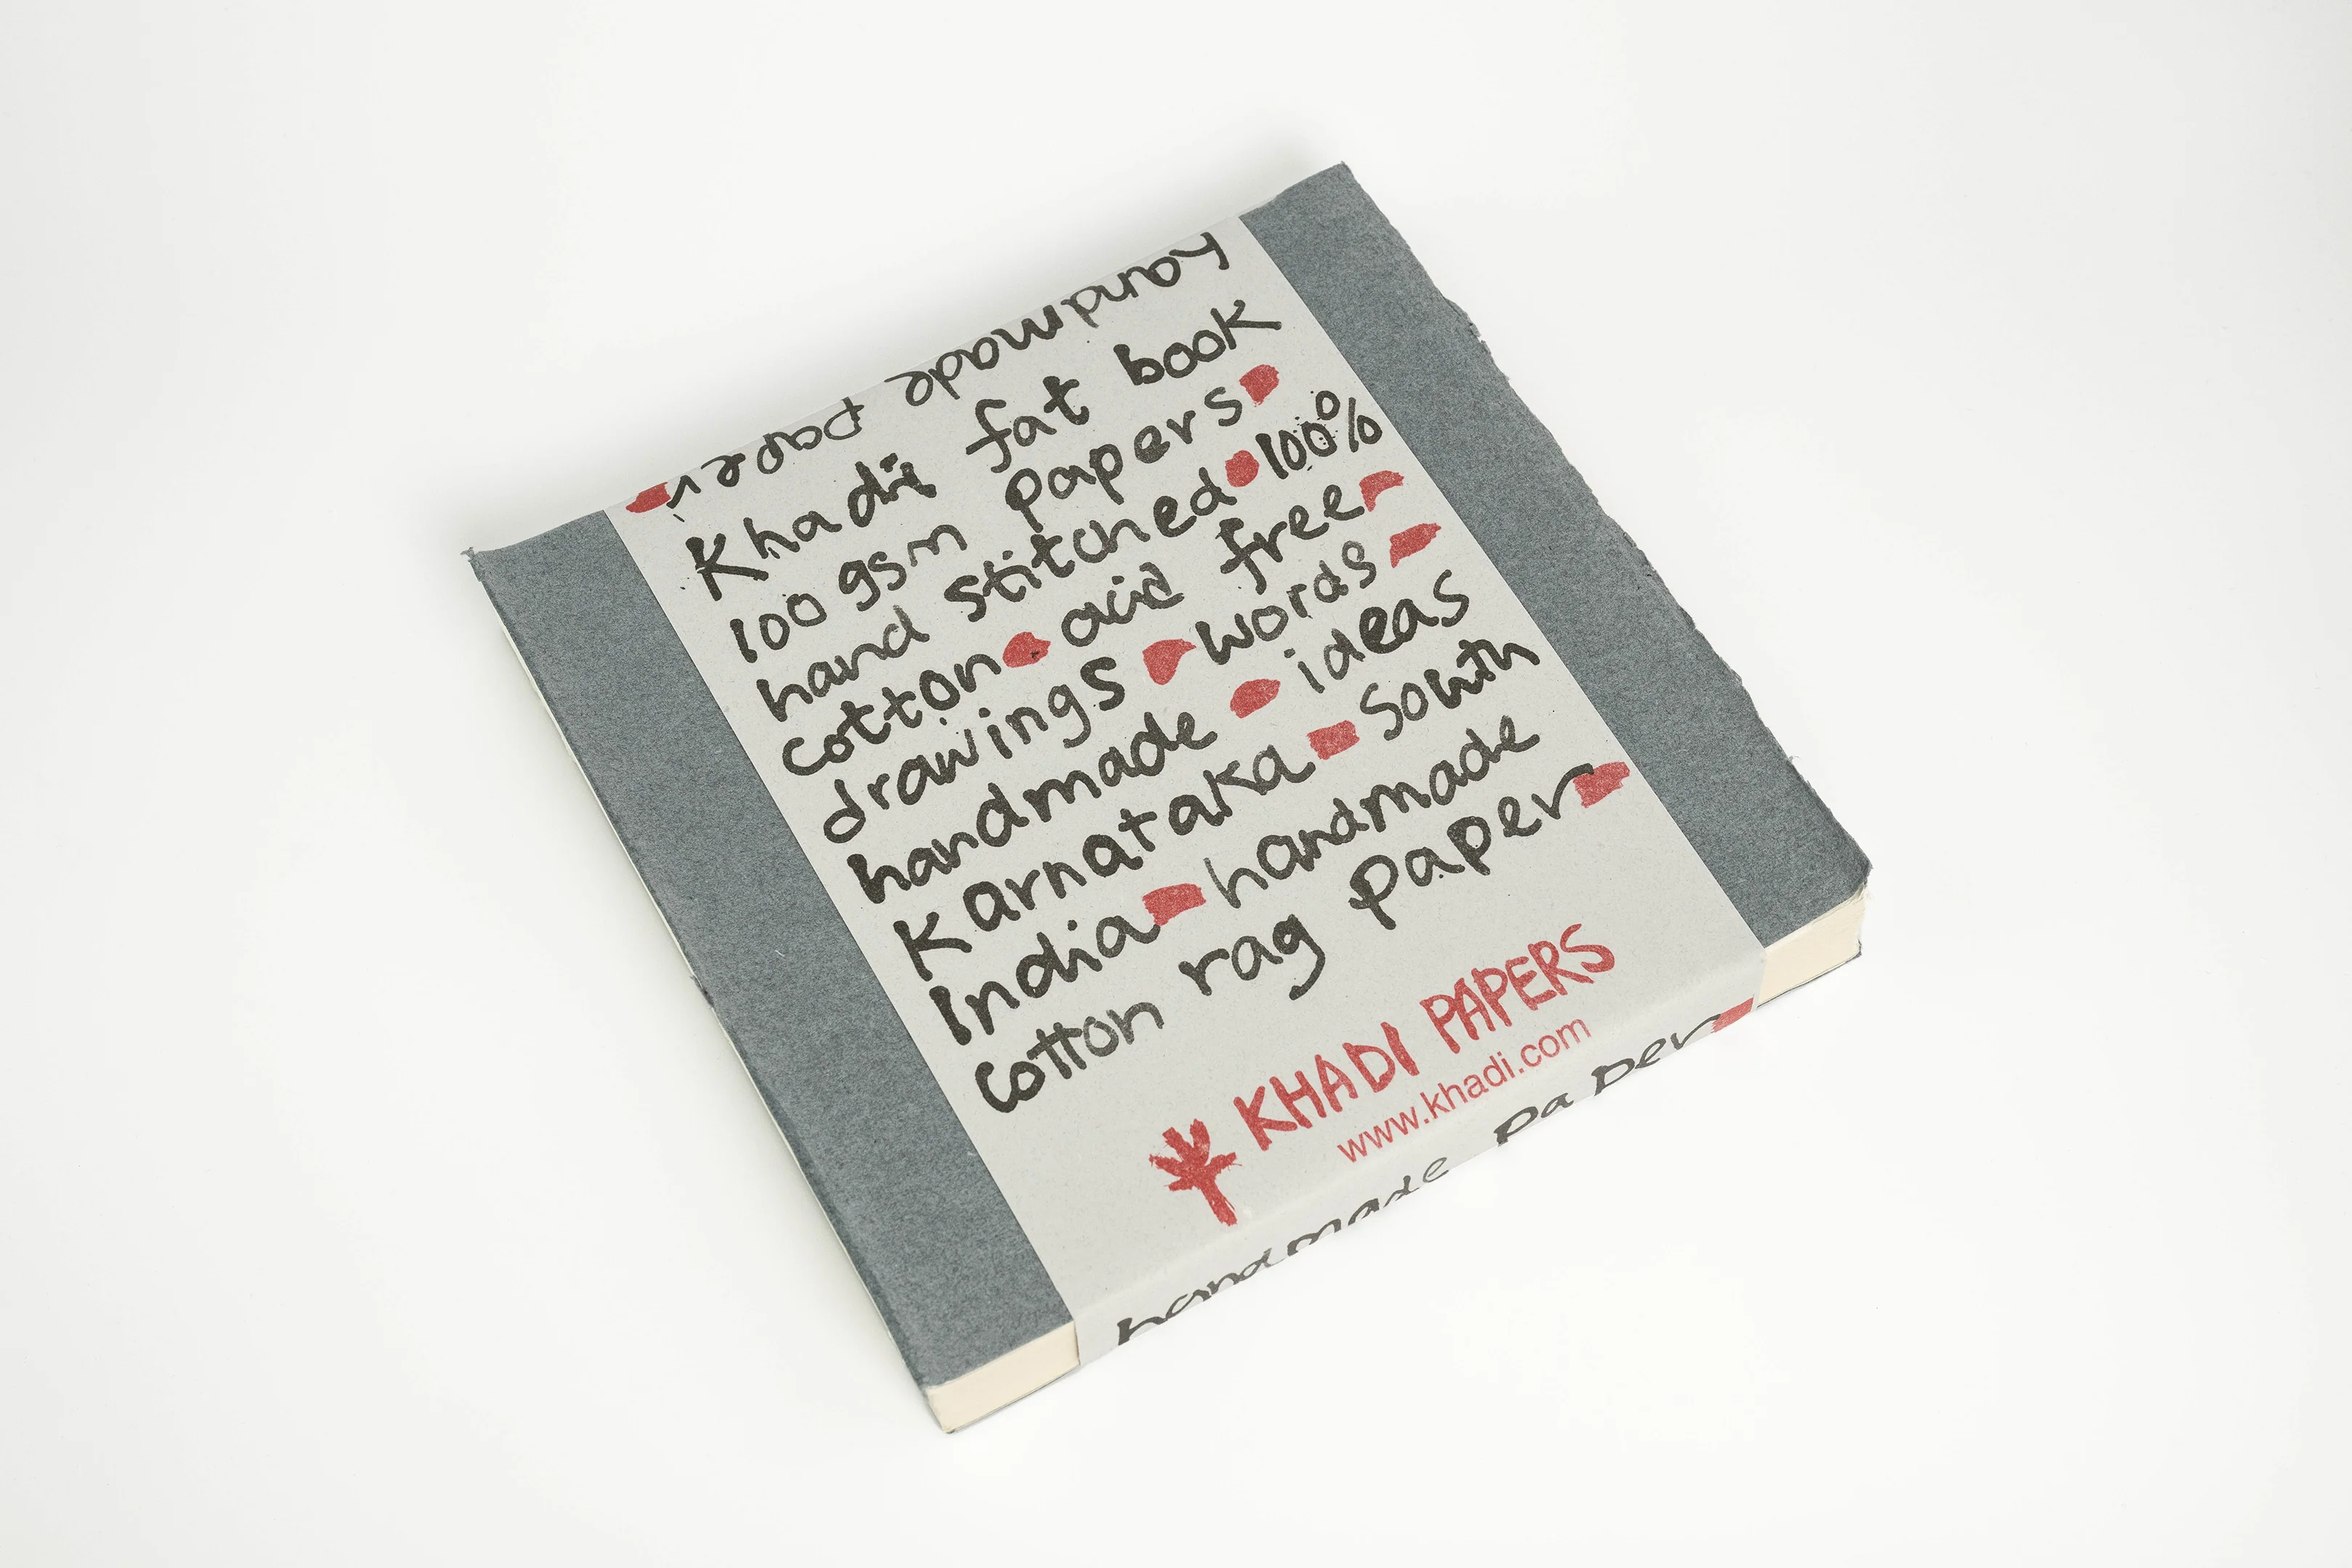 handmade paper
Khadi fat book
100 gsm papers
hand stitched 100%
cotton acid free
drawings words
handmade ideas
Karnataka South
India handmade
cotton rag paper
KHADI PAPERS
www.khadi.com
handmade paper